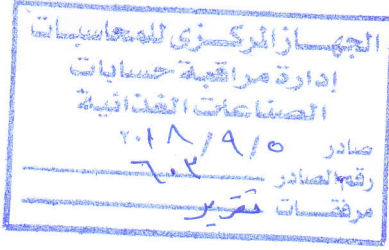 الجهاز المركزى للمحاسبات
إدارة مراقبة حسابات
الصناعات الغذائية
صادر ٢٠١٨/٩/٥
رقم الصادر ٦٠٣
مرفقات تقرير